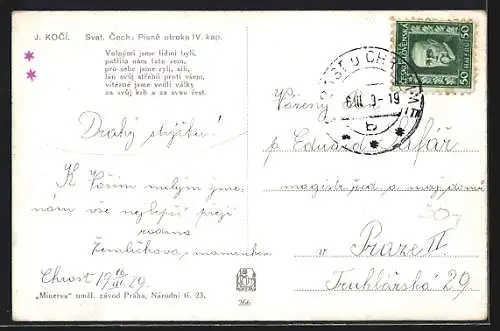 J. KOČÍ. Svat. Čech: Písně otroka IV. kap.
Volnými jsme lidmi byli,
patřila nám tato zem,
pro sebe jsme ryli, sili,
lán svůj střehli proti všem,
vítězně jsme vedli války
za svůj krb a za svou čest.
Drahý strýčku!
K Vašim milým jme-
nám vše nejlepší přejí
rodina
Žemličkova, maminka
Chrast 19 16/III 29.
„Minerva" uměl. závod Praha, Národní tř. 23.
266
ČESKOSLOVENSKÁ
50 50
HALÉŘŮ
CHRAST U CHRUDIMĚ
16.III 9-19
b
Vážený Pán
p. Eduard Šafář
magistr. rada a maj. domu
v Praze II
Truhlářská 29
50,-